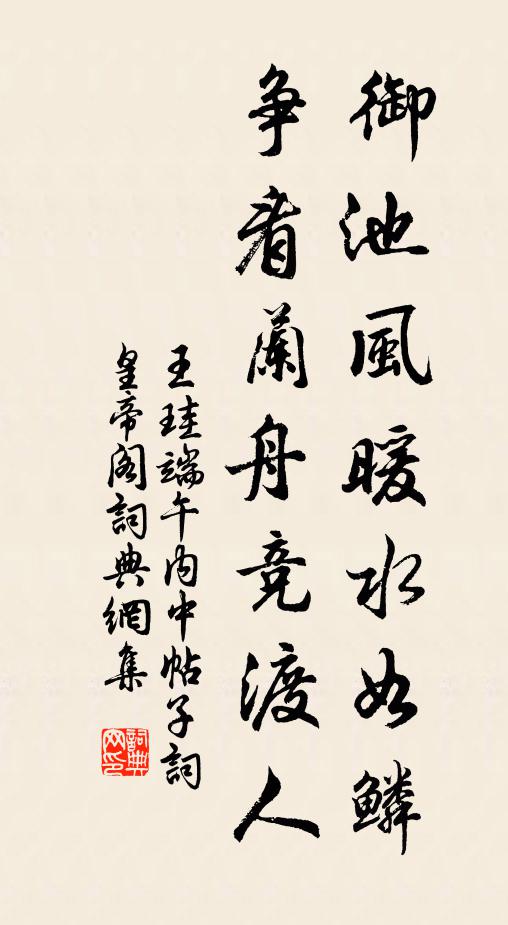 御池風暖水如鱗
争看蘭舟竞渡人
王珪端午内中帖子詞
皇帝阁詞典網集
詞典网印